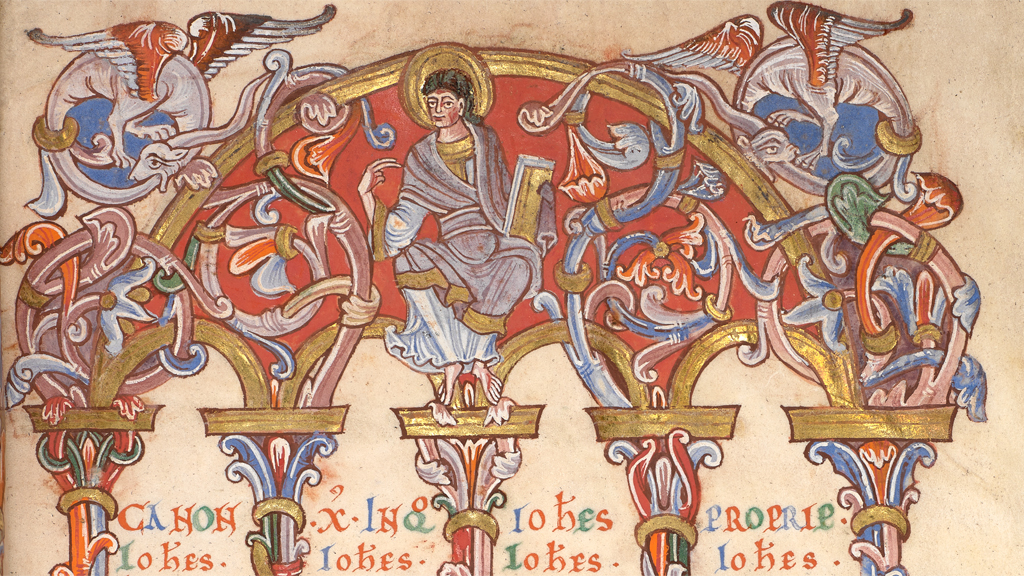 CANON · X̊ · IN Q̊ IOħES PROPRIE ·
Ioħes · Ioħes · Ioħes · Ioħes ·